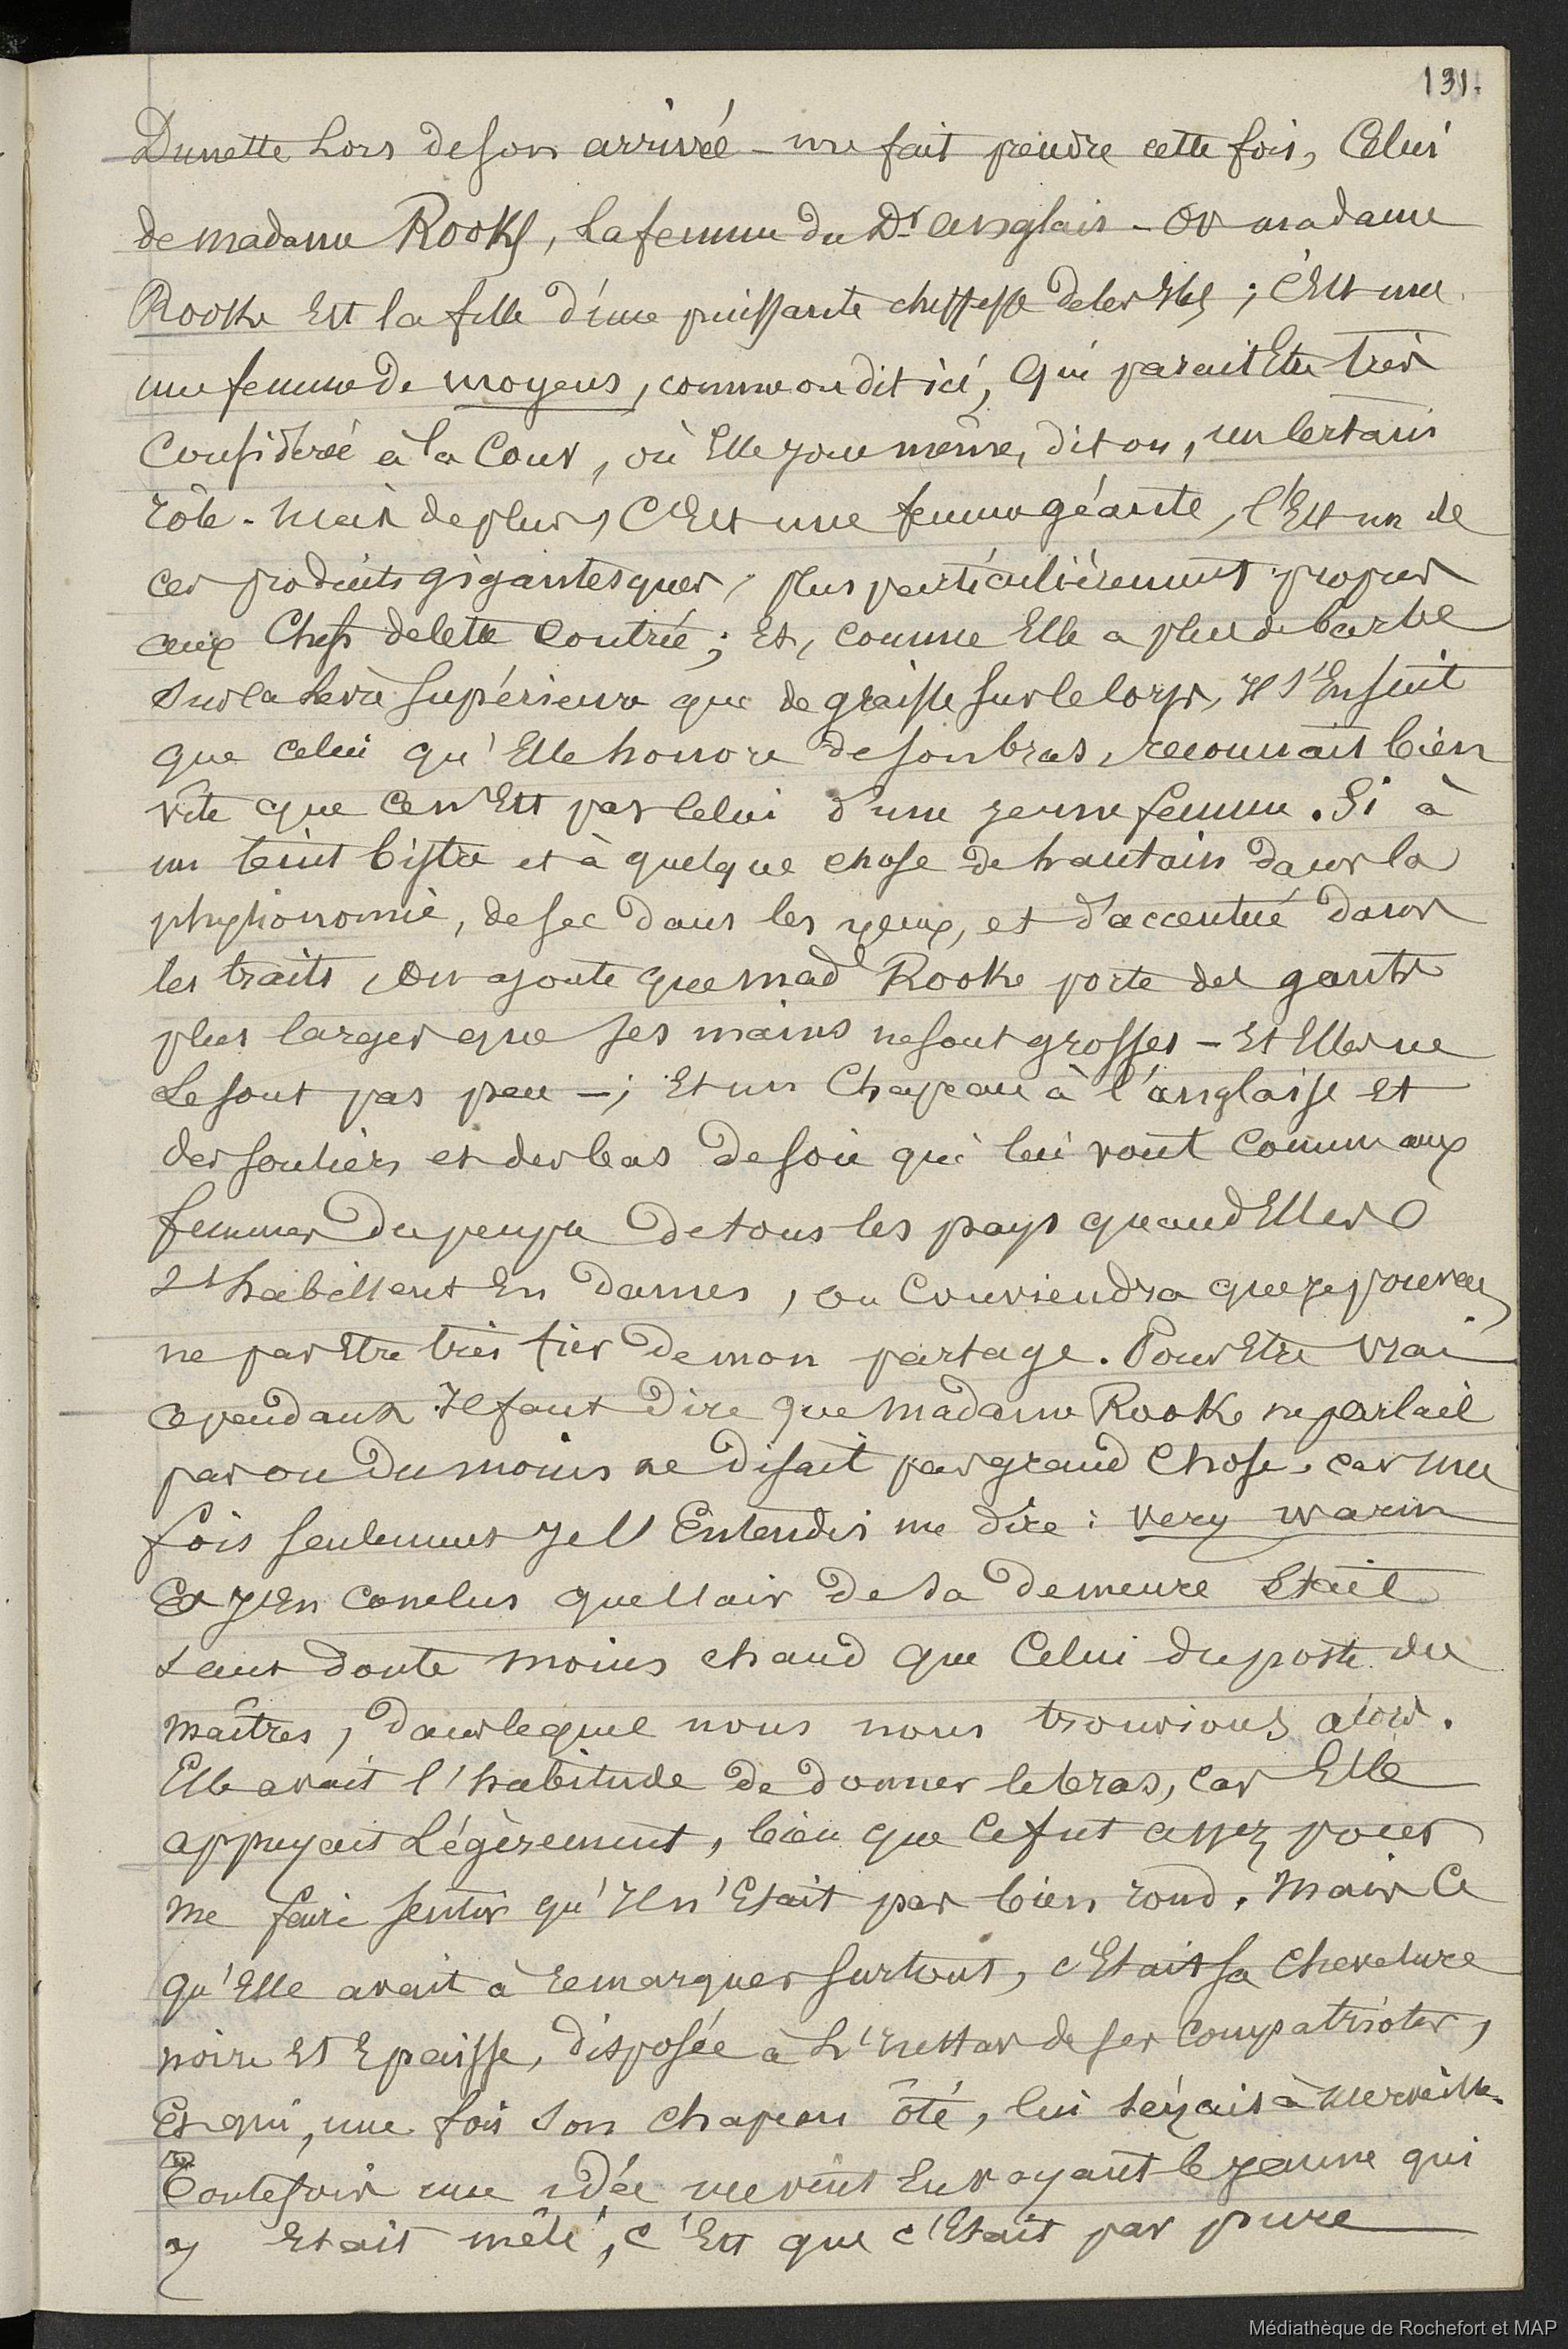 131.
Dunette Lors de son arrivée - me fait prendre cette fois, Celui
de madame Rooke, La femme du Dr anglais - Or madame
Rooke Est la fille d'une puissante cheffesse de les Iles ; C'Est une
une femme de moyens, comme on dit ici, Qui parait Etre très
Considérée à la Cour, où Elle joue même, dit on, un Certain
rôle - Mais de plus, C'Est une femme géante, C'Est un de
ces produits gigantesques, plus particulièrement propres
aux Chefs de Cette Contrée ; Et, comme Elle a plus de barbe
Sur la Lèvre Supérieure que de graisse sur le Corps, Il S'Ensuit
que celui qu'Elle honore de son bras, reconnait bien
vite que Ce n'Est pas Celui d'une jeune femme. Si à
un teint bistre et à quelque chose de hautain dans la
physionomie, de sec dans les yeux, et d'accentué dans
les traits, On ajoute que Mad Rooke porte des gants
plus larges que ses mains ne sont grosses - Et Elles ne
Le sont pas peu - ; Et un Chapeau à l'anglaise Et
des souliers et des bas de soie qui lui vont Comme aux
femmes du peuple de tous les pays quand Elles
s'habillent En Dames, on Conviendra que je pouvais
ne pas Etre très fier de mon partage. Pour Etre vrai
cependant Il faut dire que Madame Rooke ne parlait
pas ou du moins ne disait pas grand Chose, car une
fois seulement je l'Entendis me dire : very warm
Et j'En conclus que l'air de sa demeure Etait
sans doute moins chaud que Celui du poste des
Maîtres, dans lequel nous nous trouvions alors.
Elle avait l'habitude de donner le bras, Car Elle
appuyait Légèrement, bien que Ce fut assez pour
me faire sentir qu'Il n'Etait pas bien rond. Mais Ce
qu'Elle avait à remarquer surtout, c'Etait sa Chevelure
noire Et Epaisse, disposée à L'instar de ses Compatriotes,
Et qui, une fois Son Chapeau ôté, lui séyait à merveille.
Toutefois une idée me vint En voyant le jaune qui
y Etait mêlé, C'Est que c'Etait par pure
Médiathèque de Rochefort et MAP